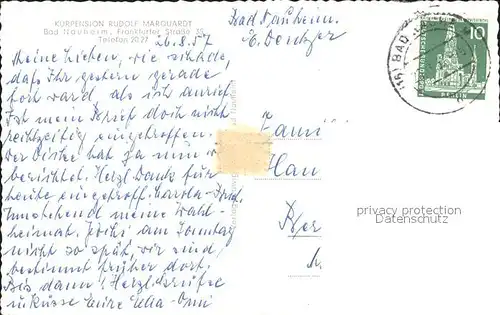 KURPENSION RUDOLF MARQUARDT
Bad Nauheim, Frankfurter Straße 35
Telefon 2027
26.8.57
Bad Nauheim.
Meine Lieben, wie schade,
daß Ihr gestern gerade
fort ward, als ich anrief.
Ist mein Brief doch nicht
rechtzeitig eingetroffen.
hat Ja nun
berichtet. Herzl. Dank für
heute eingetroff.
Umstehend meine Wahl-
heimat. am Sonntag
nicht so spät, wir sind
bestimmt früher dort.
Bis dann Herzl. Grüße
u. Küsse Eure Omi
Fami
Han
Ber
BAD
10
BERLIN
privacy protection
Datenschutz